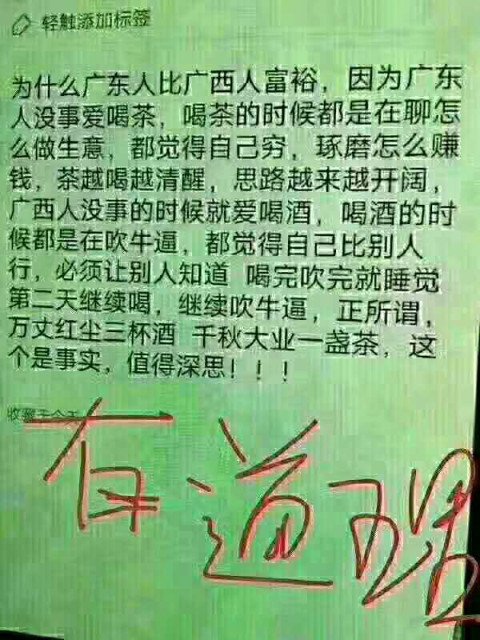 轻触添加标签
为什么广东人比广西人富裕，因为广东
人没事爱喝茶，喝茶的时候都是在聊怎
么做生意，都觉得自己穷，琢磨怎么赚
钱，茶越喝越清醒，思路越来越开阔，
广西人没事的时候就爱喝酒，喝酒的时
候都是在吹牛逼，都觉得自己比别人
行，必须让别人知道 喝完吹完就睡觉
第二天继续喝，继续吹牛逼，正所谓，
万丈红尘三杯酒 千秋大业一盏茶，这
个是事实，值得深思！！！
收藏于今天
有道理